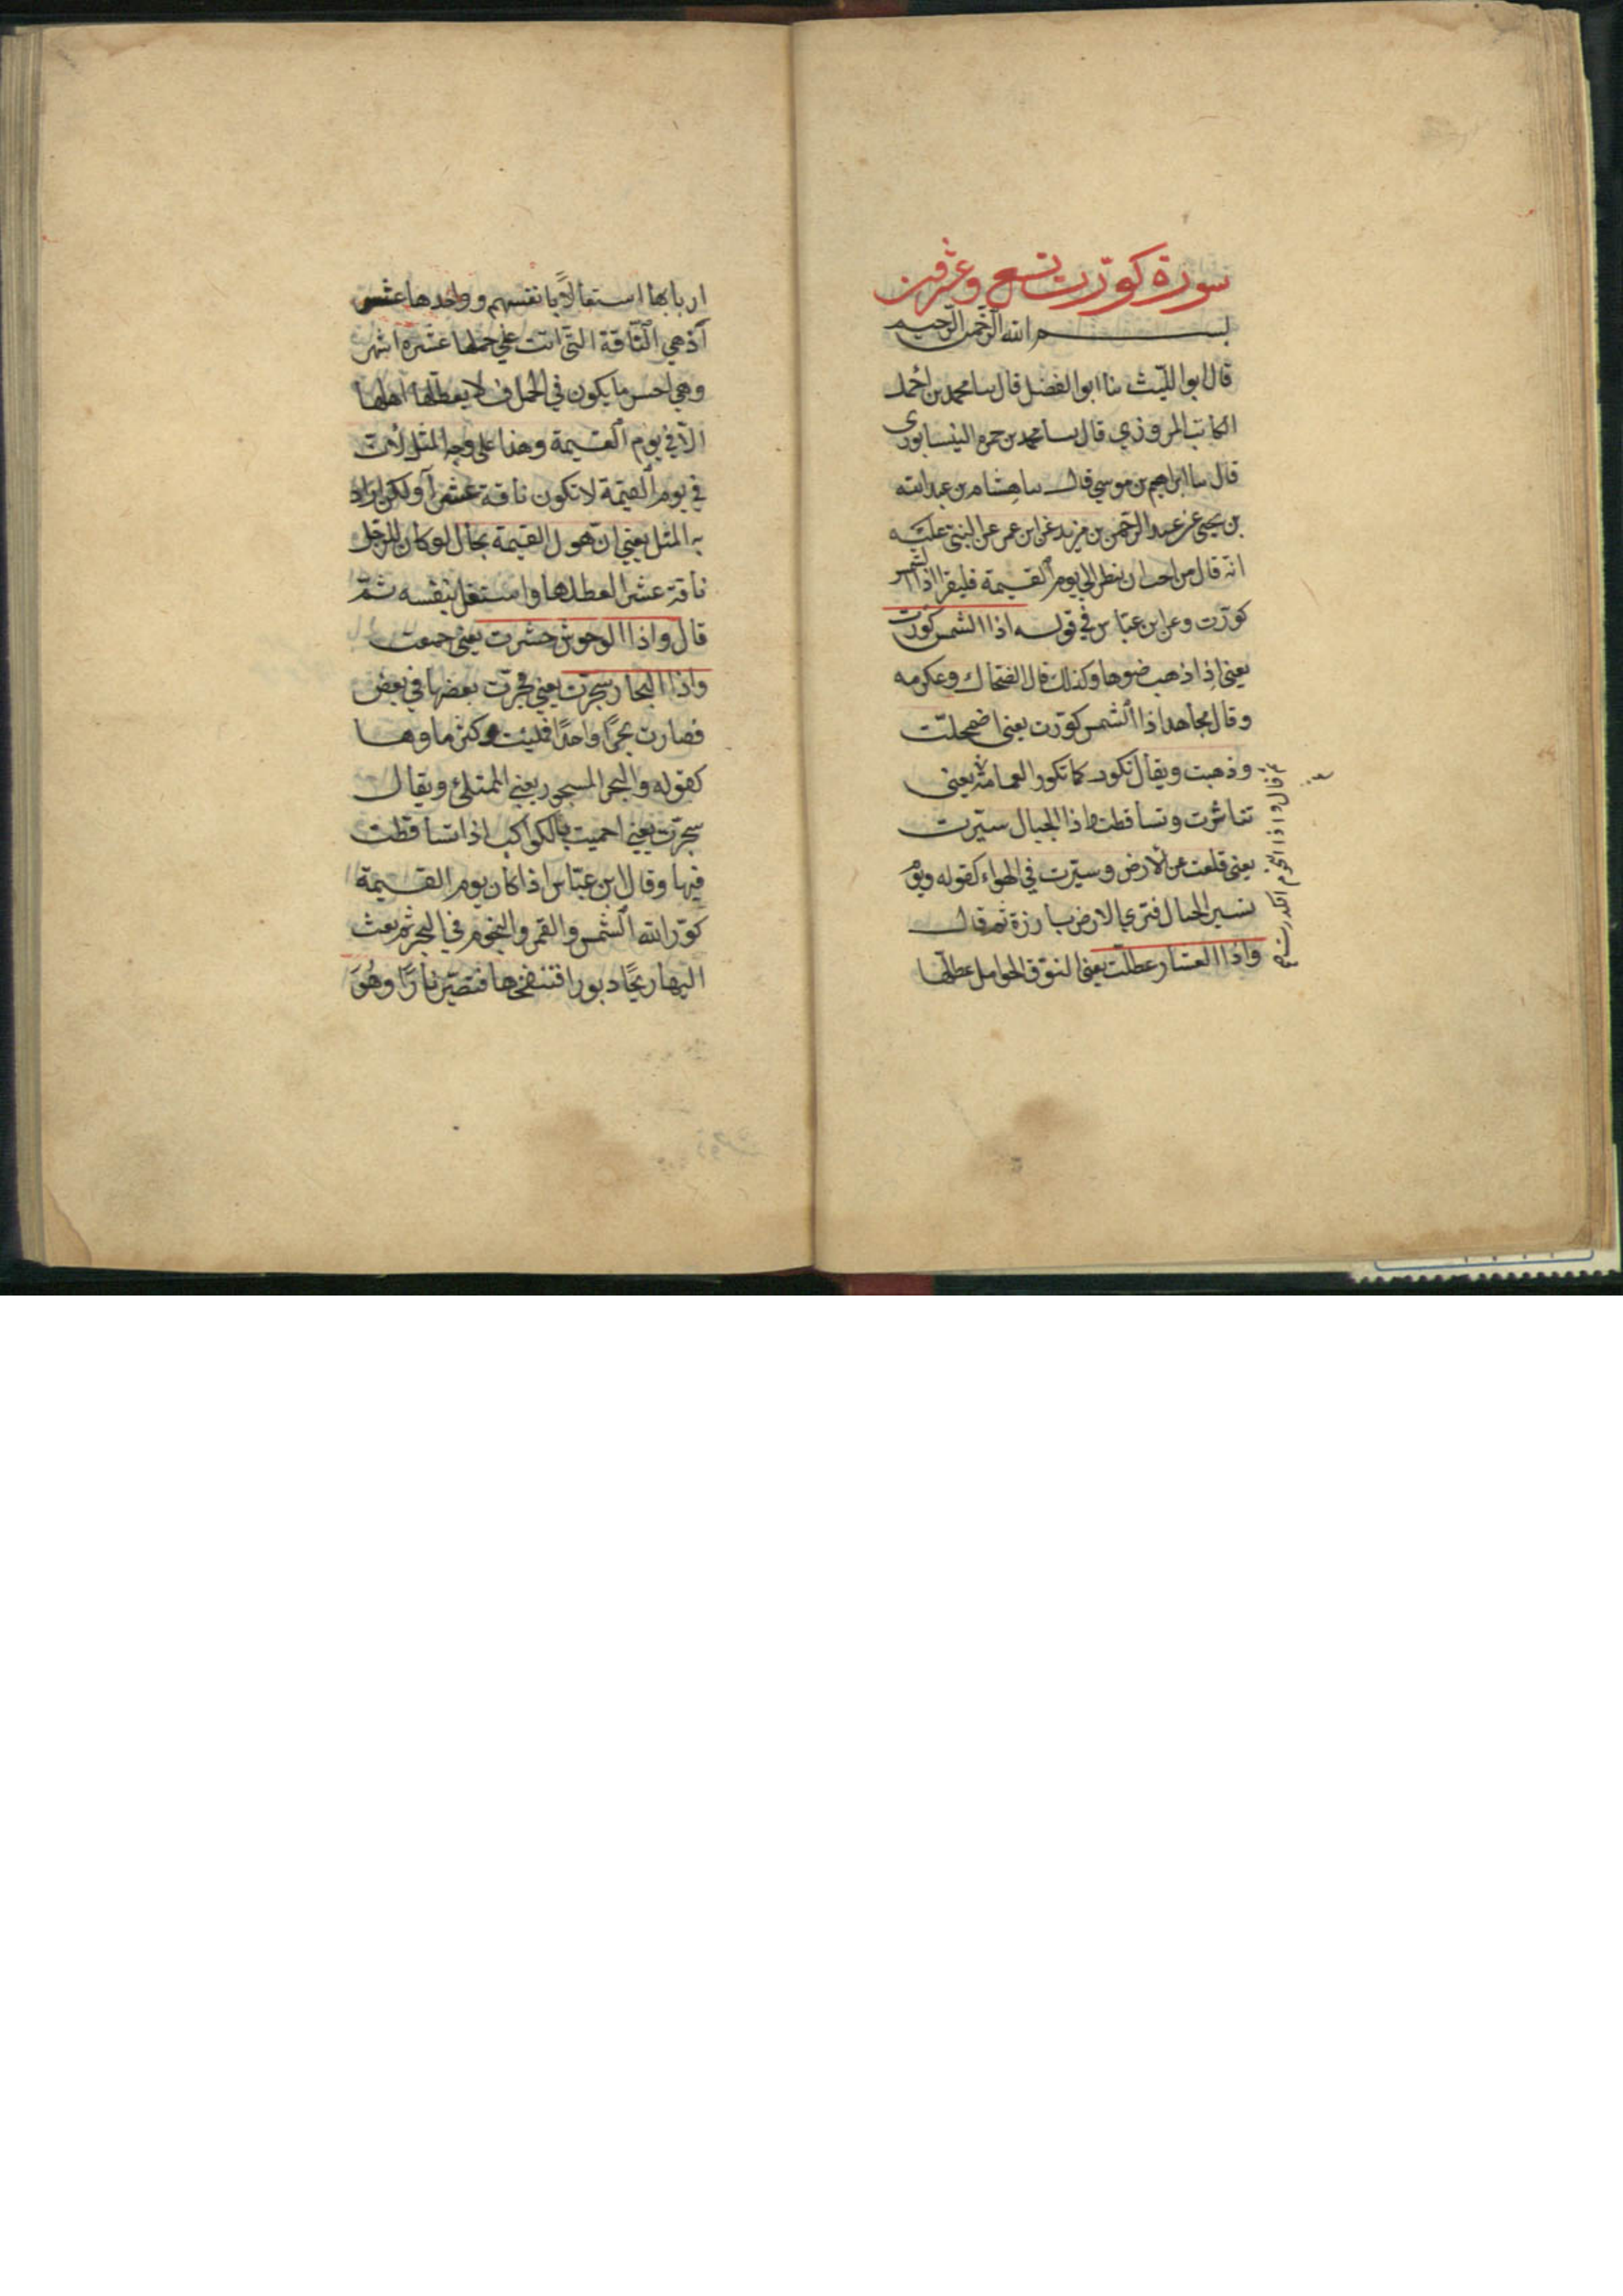 سورة كورت تسع وعشرون
بسم الله الرحمن الرحيم
قال ابو الليث ثنا ابو الفضل قال ثنا محمد بن احمد
الكاتب المروزي قال ثنا محمد بن حمه النيسابوري
قال ثنا ابراهيم بن موسي قال ثنا هشام بن عبد الله
بن يحيى عن عبد الرحمن بن مزيد عن ابن عمر عن النبى عليه
انه قال من احب ان ينظر الي يوم القيمة فليقرا اذا الشمس
كورت وعن ابن عباس في قوله اذا الشمس كورت
يعنى اذا ذهب ضوءها وكذلك قال الضحاك وعكرمه
وقال مجاهد اذا الشمس كورت يعنى اضمحلت
وذهبت ويقال تكور كما تكور العمامة يعنى
تناثرت وتساقطت واذا الجبال سيرت
يعنى قلعت عن الارض وسيرت في الهواء كقوله ويوم
نسير الجبال فتري الارض بارزة ثم قال
واذا العشار عطلت يعنى النوق الحوامل عطلها
ثم قال واذا النجوم انكدرت
اربابها اشتغالاً بانفسهم وواحدها عشر
آء هي الناقة التى اتت علي حملها عشرة اشهر
وهي احسن ما يكون في الحمل فلا يعطلها اهلها
الا في يوم القيمة وهذا على وجه المثل لأن
في يوم القيمة لا تكون ناقة عشرآ ولكن اراد
به المثل يعني ان هول القيمة بحال لو كان للرجل
ناقة عشرا لعطلها واشتغل بنفسه ثم
قال واذا الوحوش حشرت يعنى جمعت
واذا البحار سجرت يعني فجرت بعضها في بعض
فصارت بحرًا واحدًا فملئت وكثر ماوها
كقوله والبحر المسجور يعني الممتلئ ويقال
سجرت يعني احميت بالكواكب اذا تساقطت
فيها وقال ابن عباس اذا كان يوم القيمة
كور الله الشمس والقمر والنجوم في البحر ثم بعث
اليها ريحًا دبورا فتنفخها فتصير نارًا وهُوَ